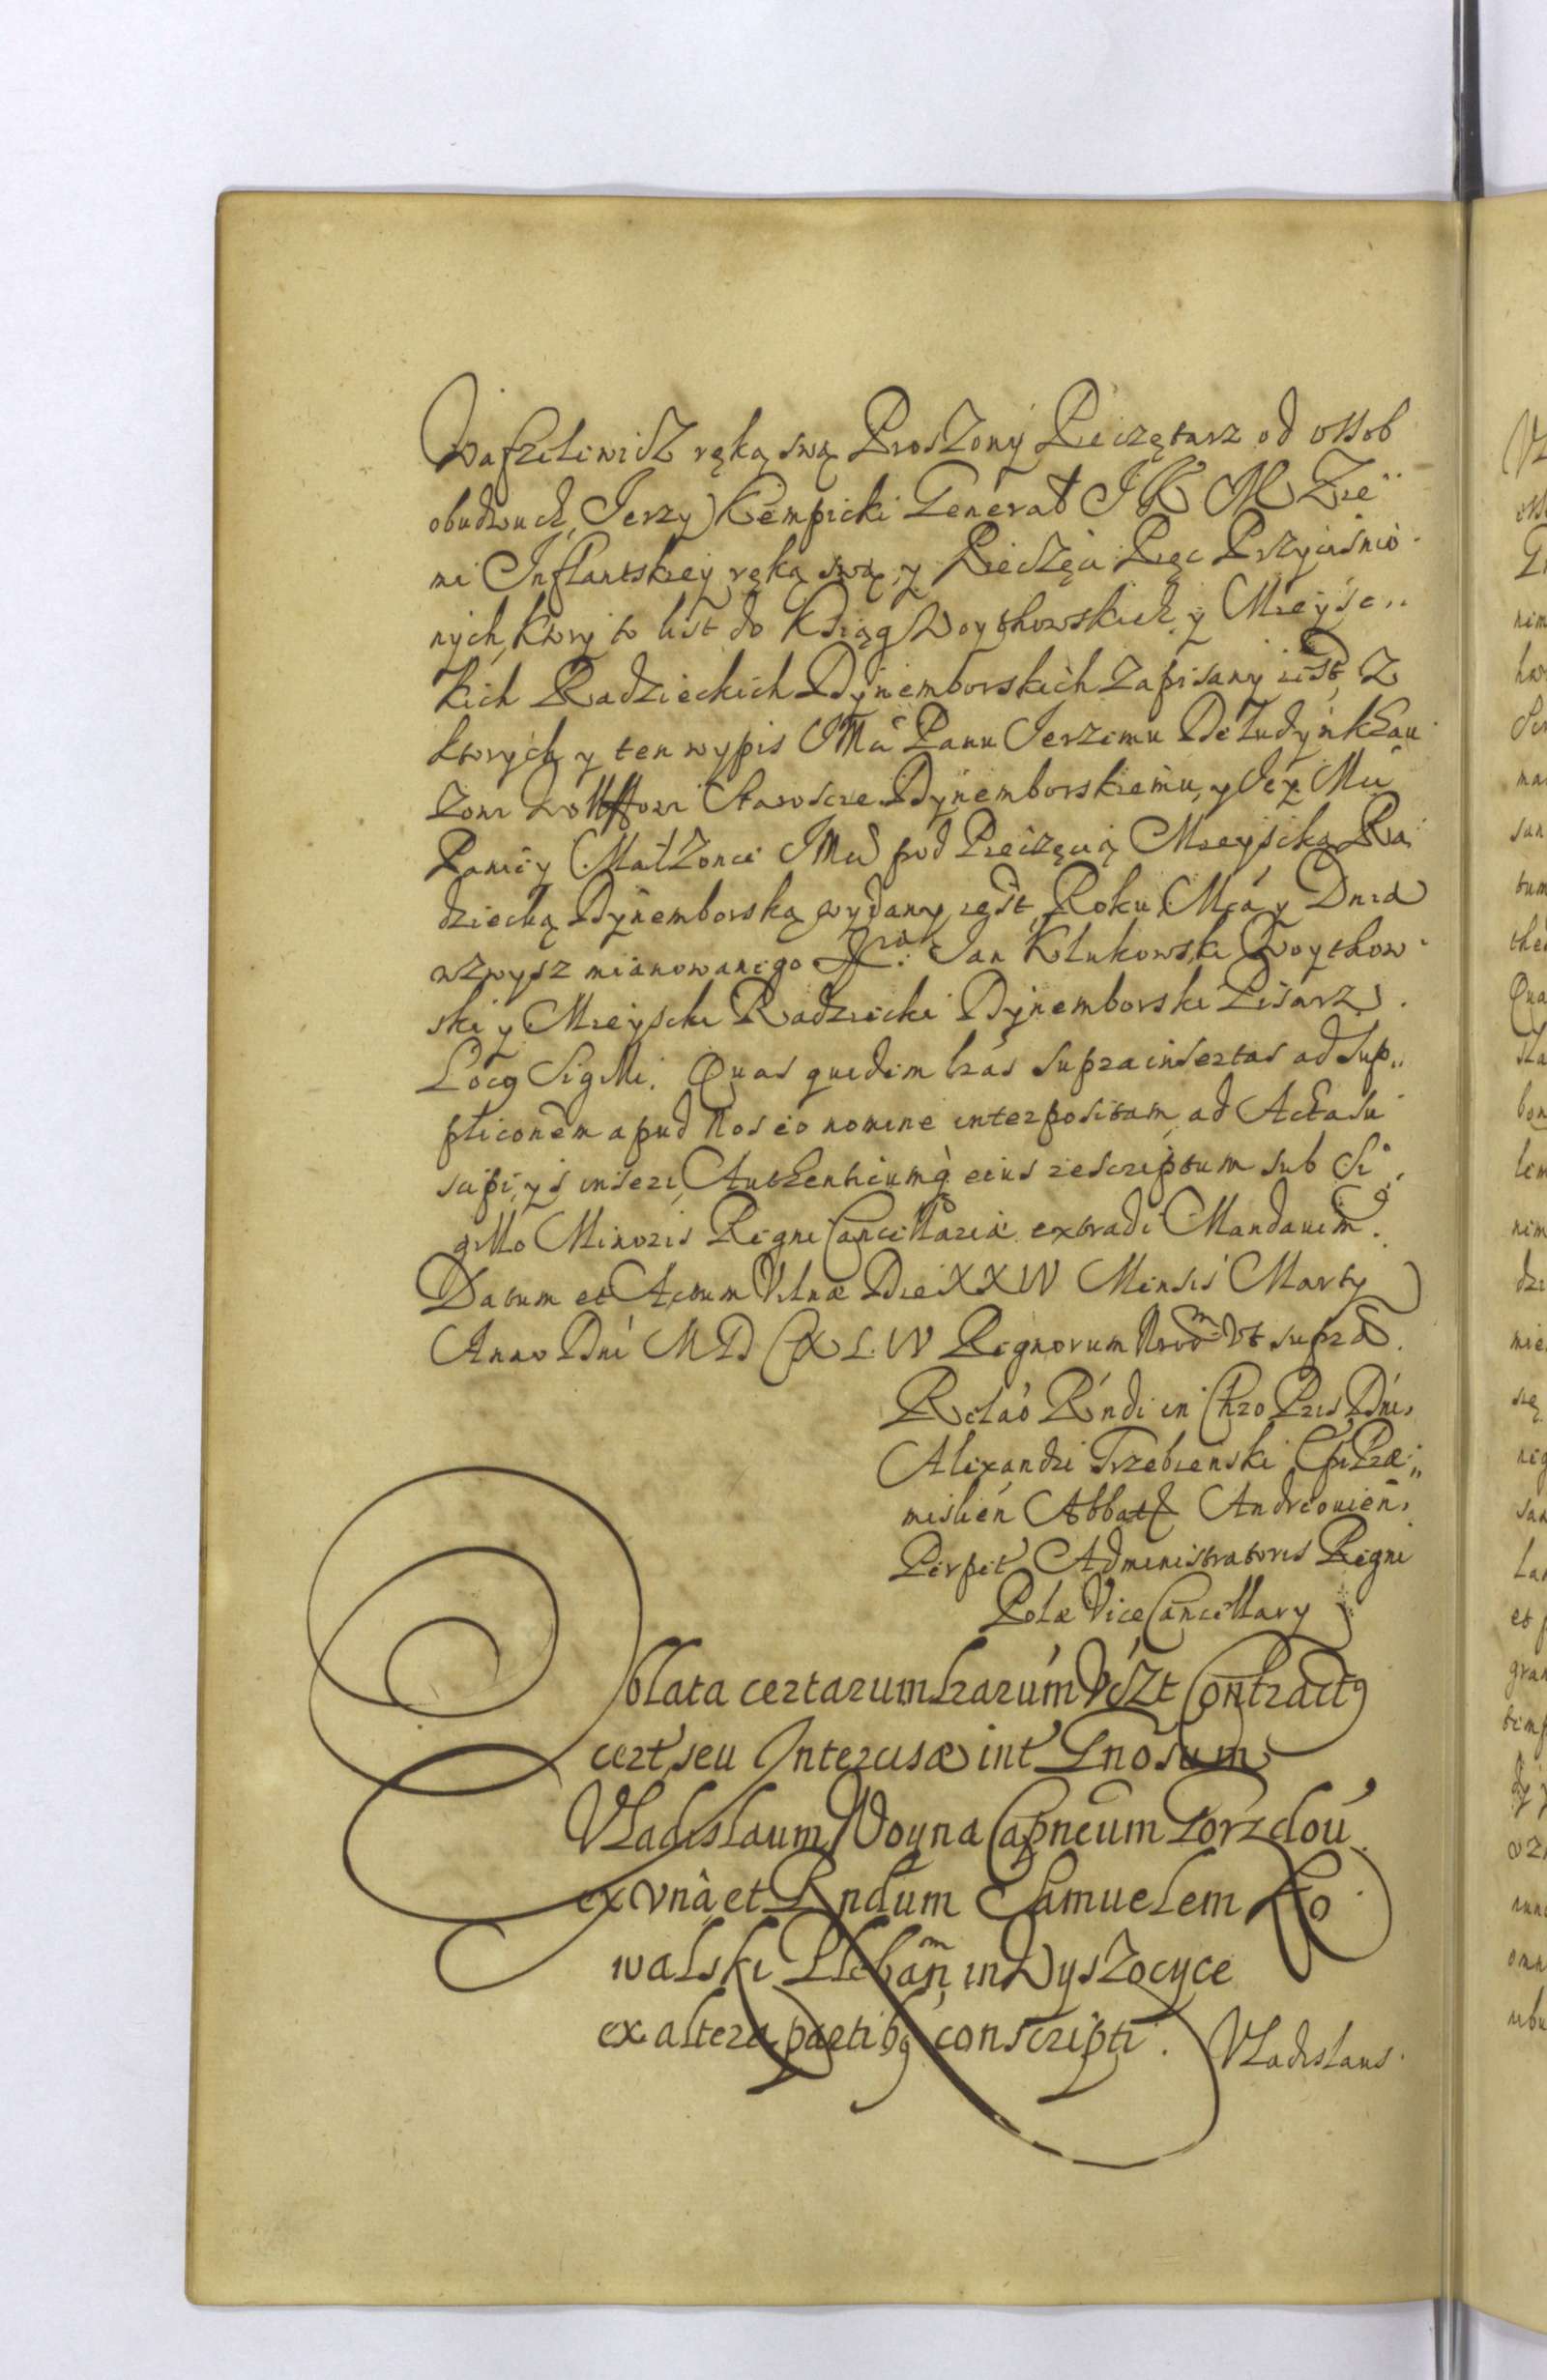 Waszelewicz ręką swą Proszony Pieczętarz od ossob
obudwuch, Jerzy Kempicki Generał J K M Zie
mi Inflantskiey ręką swą, y Pieczęci Pięc Przyciśnio
nych, ktory to list do Ksiąg Woythowskich y Mieysc
kich Radzieckich Dyjnemborskich zapisany iest, z
ktorych y ten wypis JMci Panu Jerzemu De Ludynkhau
zowi Wolffowi Staroscie Dynemborskiemu, y Jey Mci
Paniey Małzonce JMci pod Pieczęcią Mieyscką Ra
dziecką Dynemborską wydany iest, Roku Mca y Dnia
wzwysz mianowanego Jan Klukowski Woythow
ski y Mieyscki Radziecki Dyjnemborski Pisarz.
Locq Sigilli. Quas quidem lras supra insertas ad Sup
pliconem apud Nos eo nomine interpositam, ad Acta su
scipi, ys inseri, Authenticumq eius rescriptum sub Si
gillo Minoris Regni Cancellariae extradi Mandauim.
Datum et Actum Vilnæ Die XXIV Mensis Marty
Anno Dni M D C X L IV Regnorum Nrorm Vt supra.
Relao Rndi in Chro Pris Dni,
Alexandri Trzebienski Epi Præ
mislien Abbatis Andreouien,
Perpet Administratoris Regni
Polæ Vice Cancellary
Oblata certarum lrarum Vszt Contractq
cert, seu Intercisæ int Gnosum
Vladislaum Woyna Capneum
ex vna et Rndum Samuelem Ko
walski Plebanm in Wyszocyce
ex altera partibq conscripti. Vladislaus